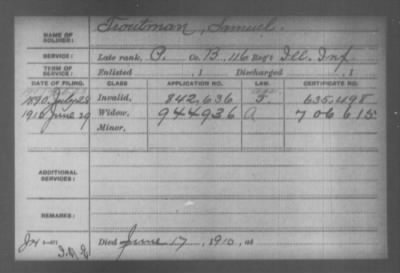 NAME OF SOLDIER: Troutman, Samuel.
SERVICE: Late rank, P. Co. B, 116 Reg't Ill. Inf.
TERM OF SERVICE: Enlisted , 1 Discharged , 1
DATE OF FILING. CLASS. APPLICATION NO. CERTIFICATE NO.
1890, July 28 Invalid, 842,636 635,498
1910 June 29 Widow, 944936 706615
Minor,
ADDITIONAL SERVICES:
REMARKS:
Died June 17, 1910, at